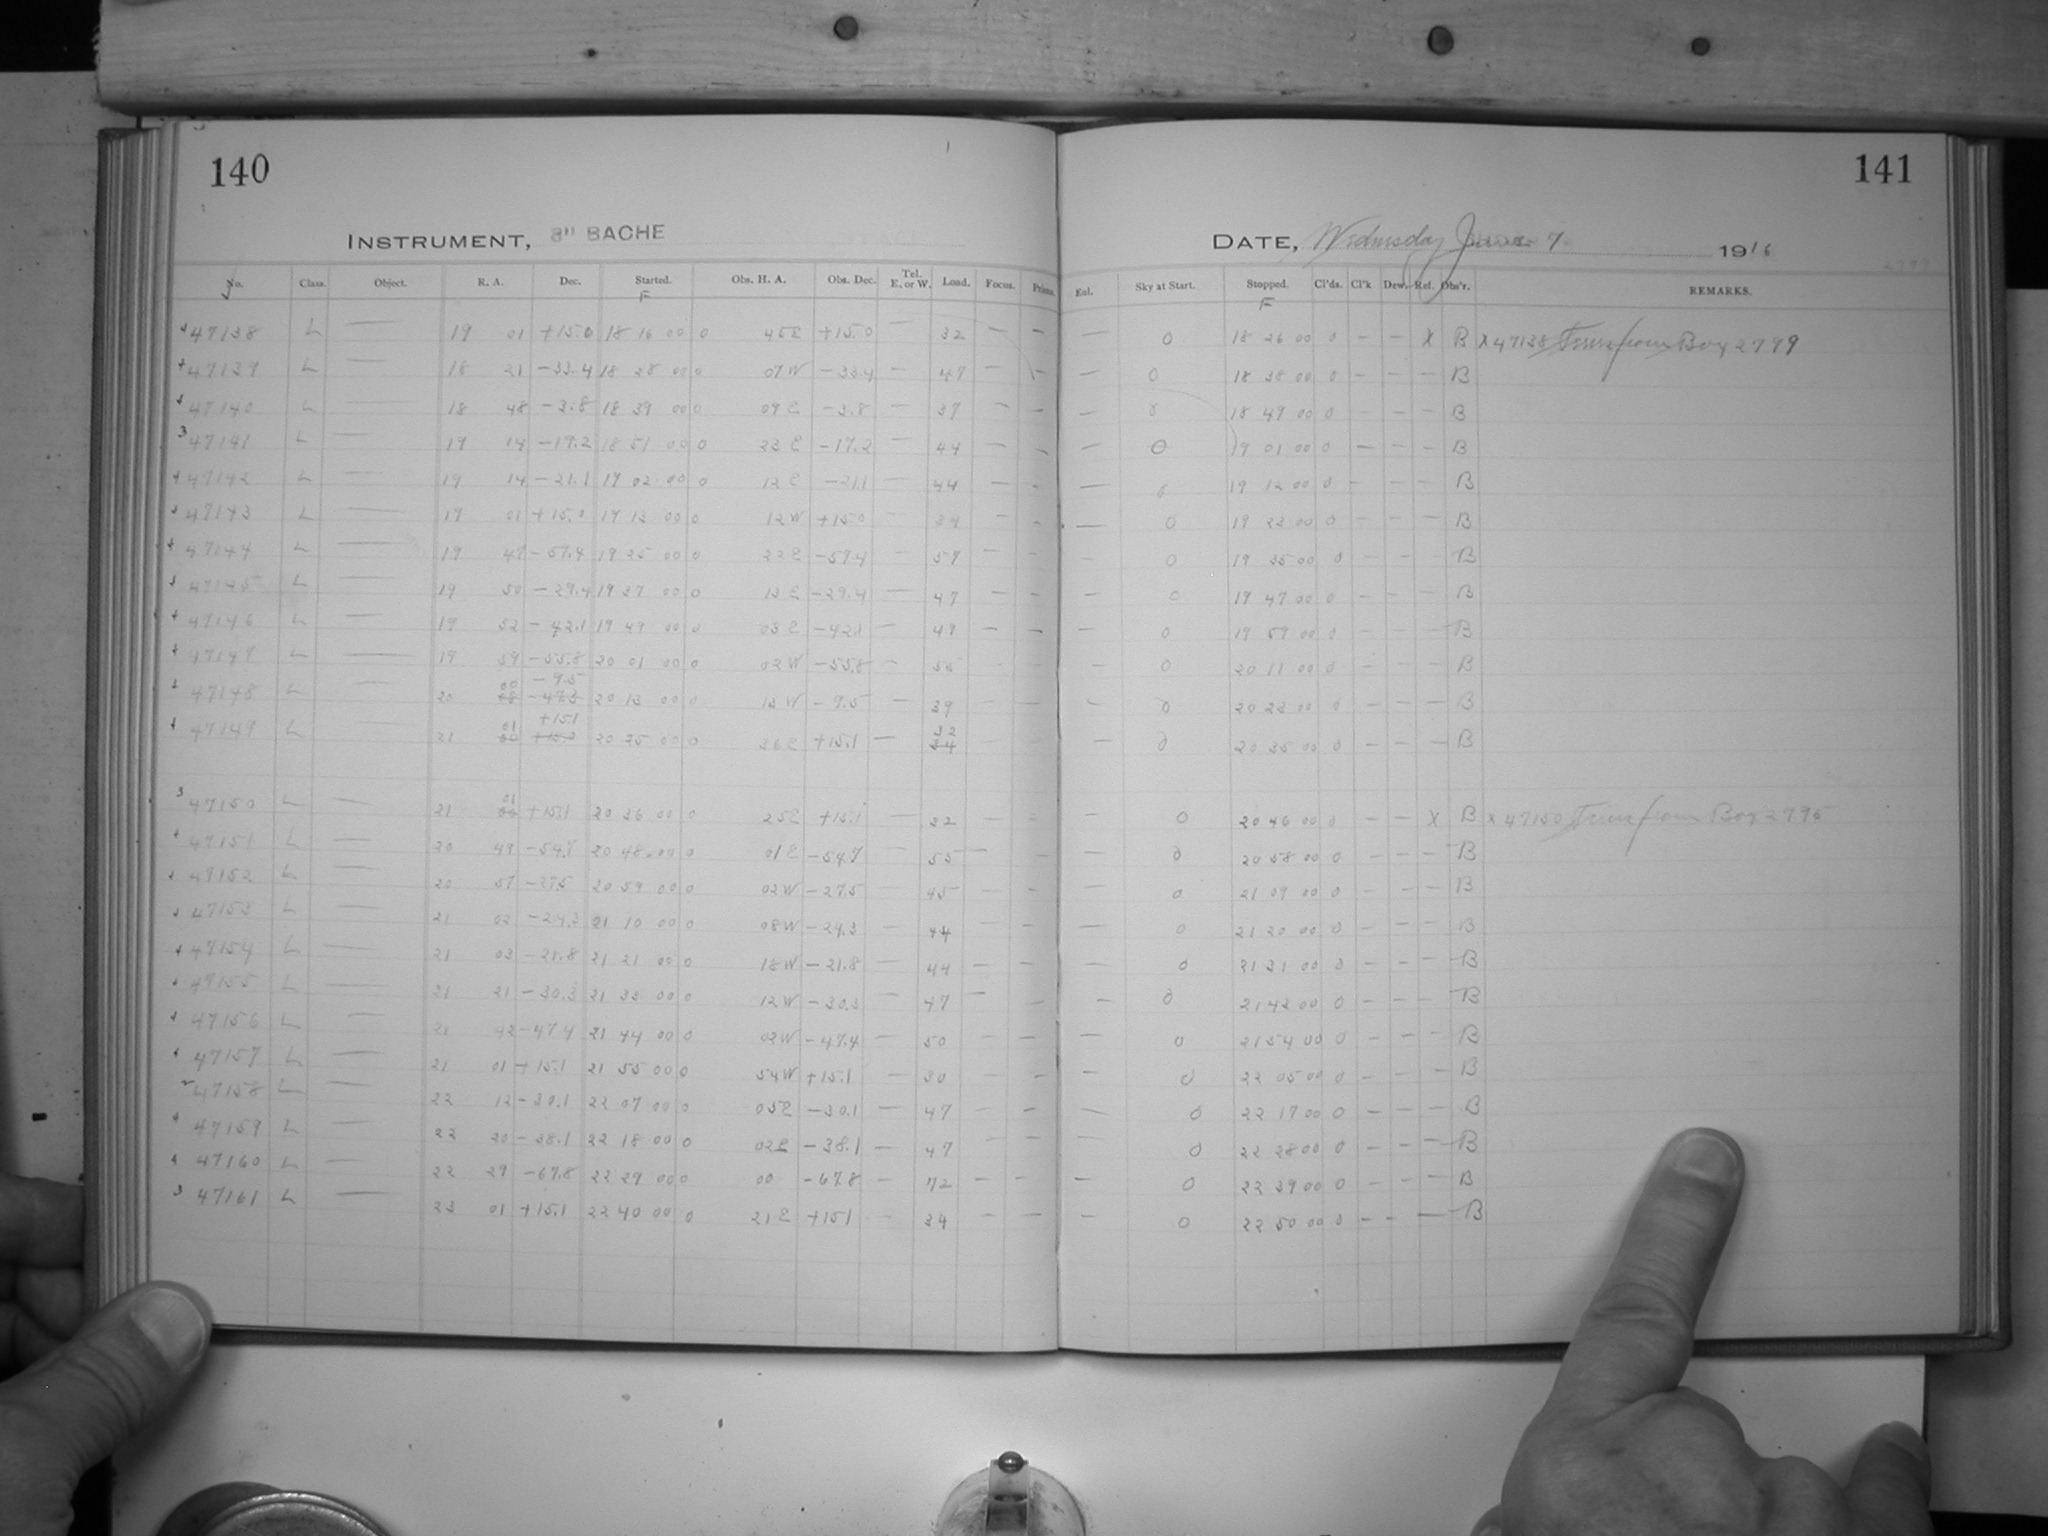 140
141
INSTRUMENT, 8" BACHE
DATE, Wednesday June 7 1916
No. Class. Object. R. A. Dec. Started. Obs. H. A. Obs. Dec. Tel. E. or W. Load. Focus. Prisms. Eul. Sky at Start. Stopped. Cl'ds. Cl'k Dew. Ref. Obs'r. REMARKS.
F F
47138 L — 19 01 +15.0 18 16 00 0 45E +15.0 — 32 — — — 0 18 26 00 0 — — X B X 47138 Trans from Box 2799
47139 L — 18 21 -33.4 18 28 00 0 07W -33.4 — 47 — — — 0 18 38 00 0 — — — B
47140 L — 18 48 -3.8 18 39 00 0 09E -3.8 — 37 — — — 0 18 49 00 0 — — — B
47141 L — 19 14 -19.2 18 51 00 0 23E -19.2 — 44 — — — 0 19 01 00 0 — — — B
47142 L — 19 14 -21.1 19 02 00 0 12E -21.1 — 44 — — — 0 19 12 00 0 — — — B
47143 L — 19 01 +15.0 19 13 00 0 12W +15.0 — 34 — — — 0 19 23 00 0 — — — B
47144 L — 19 47 -57.4 19 25 00 0 22E -57.4 — 57 — — — 0 19 35 00 0 — — — B
47145 L — 19 50 -29.4 19 37 00 0 13E -29.4 — 47 — — — 0 19 47 00 0 — — — B
47146 L — 19 52 -42.1 19 49 00 0 03E -42.1 — 49 — — — 0 19 59 00 0 — — — B
47147 L — 19 59 -55.8 20 01 00 0 02W -55.8 — — — — 0 20 11 00 0 — — — B
00 -9.5
47148 L — 20 08 -47.3 20 13 00 0 13W -9.5 — 39 — — — 0 20 23 00 0 — — — B
01 +15.1 32
47149 L — 21 +15.0 20 25 00 0 36E +15.1 — 34 — 0 20 35 00 0 — — — B
01
47150 L — 21 +15.1 20 36 00 0 25E +15.1 — 32 — — — 0 20 46 00 0 — — X B X 47150 Trans from Box 2795
47151 L — 20 49 -54.7 20 48 00 0 01E -54.7 — 55 — — — 0 20 58 00 0 — — — B
47152 L — 20 57 -27.5 20 59 00 0 02W -27.5 — 45 — — — 0 21 09 00 0 — — — B
47153 L — 21 02 -24.3 21 10 00 0 08W -24.3 — 44 — — — 0 21 20 00 0 — — — B
47154 L — 21 03 -21.8 21 21 00 0 18W -21.8 — 44 — — — 0 21 31 00 0 — — — B
47155 L — 21 21 -30.3 21 33 00 0 12W -30.3 — 47 — — — 0 21 42 00 0 — — — B
47156 L — 21 42 -47.4 21 44 00 0 02W -47.4 — 50 — — — 0 21 54 00 0 — — — B
47157 L — 21 01 +15.1 21 55 00 0 54W +15.1 — 30 — — — 0 22 05 00 0 — — — B
47158 L — 22 12 -30.1 22 07 00 0 05E -30.1 — 47 — — — 0 22 17 00 0 — — — B
47159 L — 22 20 -38.1 22 18 00 0 02E -38.1 — 47 — — — 0 22 28 00 0 — — — B
47160 L — 22 29 -67.8 22 29 00 0 00 -67.8 — 72 — — — 0 22 39 00 0 — — — B
47161 L — 23 01 +15.1 22 40 00 0 21E +15.1 — 34 — — — 0 22 50 00 0 — — — B